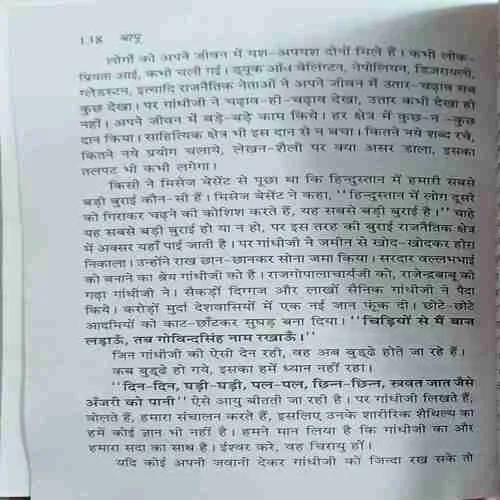 138 बापू
लोगों को अपने जीवन में यश-अपयश दोनों मिले हैं। कभी लोक-
प्रियता आई, कभी चली गई। ड्यूक ऑव वेलिंग्टन, नेपोलियन, डिजरायली,
ग्लेडस्टन, इत्यादि राजनैतिक नेताओं ने अपने जीवन में उतार-चढ़ाव सब
कुछ देखा। पर गांधीजी ने चढ़ाव-ही-चढ़ाव देखा, उतार कभी देखा ही
नहीं। अपने जीवन में बड़े-बड़े काम किये। हर क्षेत्र में कुछ-न-कुछ
दान किया। साहित्यिक क्षेत्र भी इस दान से न बचा। कितने नये शब्द रचे,
कितने नये प्रयोग चलाये, लेखन-शैली पर क्या असर डाला, इसका
तलपट भी कभी लगेगा।
किसी ने मिसेज बेसेंट से पूछा था कि हिन्दुस्तान में हमारी सबसे
बड़ी बुराई कौन-सी है। मिसेज बेसेंट ने कहा, "हिन्दुस्तान में लोग दूसरे
को गिराकर चढ़ने की कोशिश करते हैं, यह सबसे बड़ी बुराई है।" चाहे
यह सबसे बड़ी बुराई हो या न हो, पर इस तरह की बुराई राजनैतिक क्षेत्र
में अक्सर यहाँ पाई जाती है। पर गांधीजी ने जमीन से खोद-खोदकर हीरा
निकाला। उन्होंने राख छान-छानकर सोना जमा किया। सरदार वल्लभभाई
को बनाने का श्रेय गांधीजी को है। राजगोपालाचार्यजी को, राजेन्द्रबाबू को
गढ़ा गांधीजी ने। सैकड़ों दिग्गज और लाखों सैनिक गांधीजी ने पैदा
किये। करोड़ों मुर्दा देशवासियों में एक नई जान फूंक दी। छोटे-छोटे
आदमियों को काट-छाँटकर सुघड़ बना दिया। "चिड़ियों से मैं बाज
लड़ाऊँ, तब गोविन्दसिंह नाम रखाऊँ।"
जिन गांधीजी की ऐसी देन रही, वह अब बुड्ढे होते जा रहे हैं।
कब बुड्ढे हो गये, इसका हमें ध्यान नहीं रहा।
"दिन-दिन, घड़ी-घड़ी, पल-पल, छिन्न-छिन्न, स्रवत जात जैसे
अँजरी को पानी" ऐसे आयु बीतती जा रही है। पर गांधीजी लिखते हैं,
बोलते हैं, हमारा संचालन करते हैं, इसलिए उनके शारीरिक शैथिल्य का
हमें कोई ज्ञान भी नहीं है। हमने मान लिया है कि गांधीजी का और
हमारा सदा का साथ है। ईश्वर करे, वह चिरायु हों।
यदि कोई अपनी जवानी देकर गांधीजी को जिन्दा रख सके तो